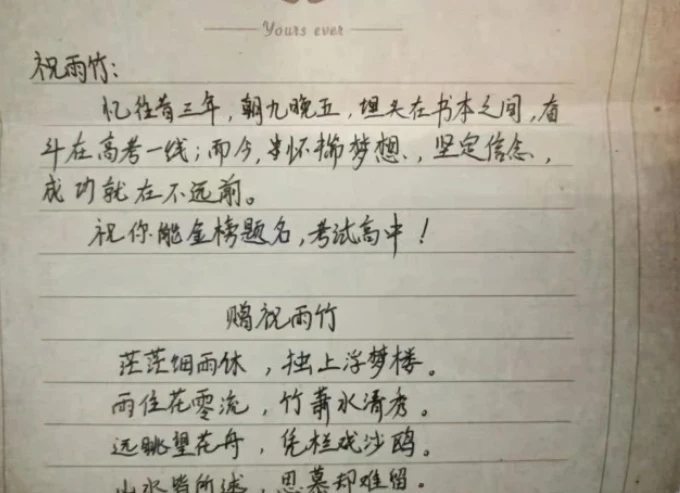 Yours ever
祝雨竹：
忆往昔三年，朝九晚五，埋头在书本之间，奋
斗在高考一线；而今，怀揣梦想，坚定信念，
成功就在不远前。
祝你能金榜题名，考试高中！
赠祝雨竹
茫茫细雨休，独上浮梦楼。
雨住花零流，竹萧水清秀。
远眺望花舟，凭栏戏沙鸥。
山水皆所求，思慕却难留。